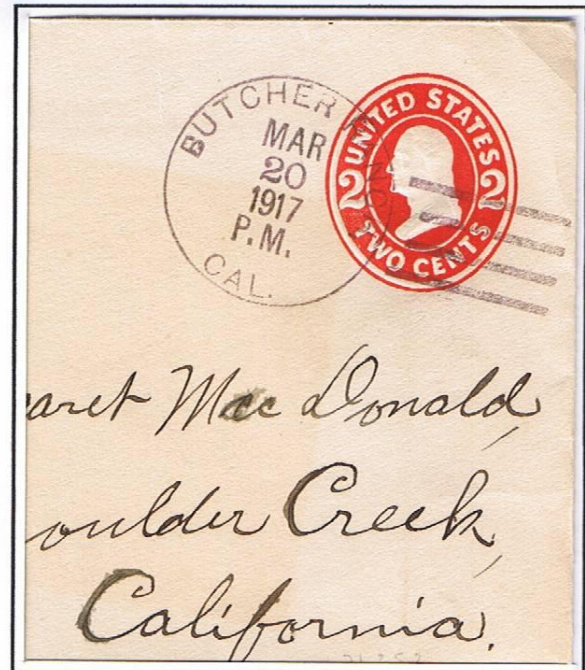 BUTCHER
MAR
20
1917
P.M.
CAL.
UNITED STATES
2 2
TWO CENTS
aret Mac Donald,
oulder Creek,
California.